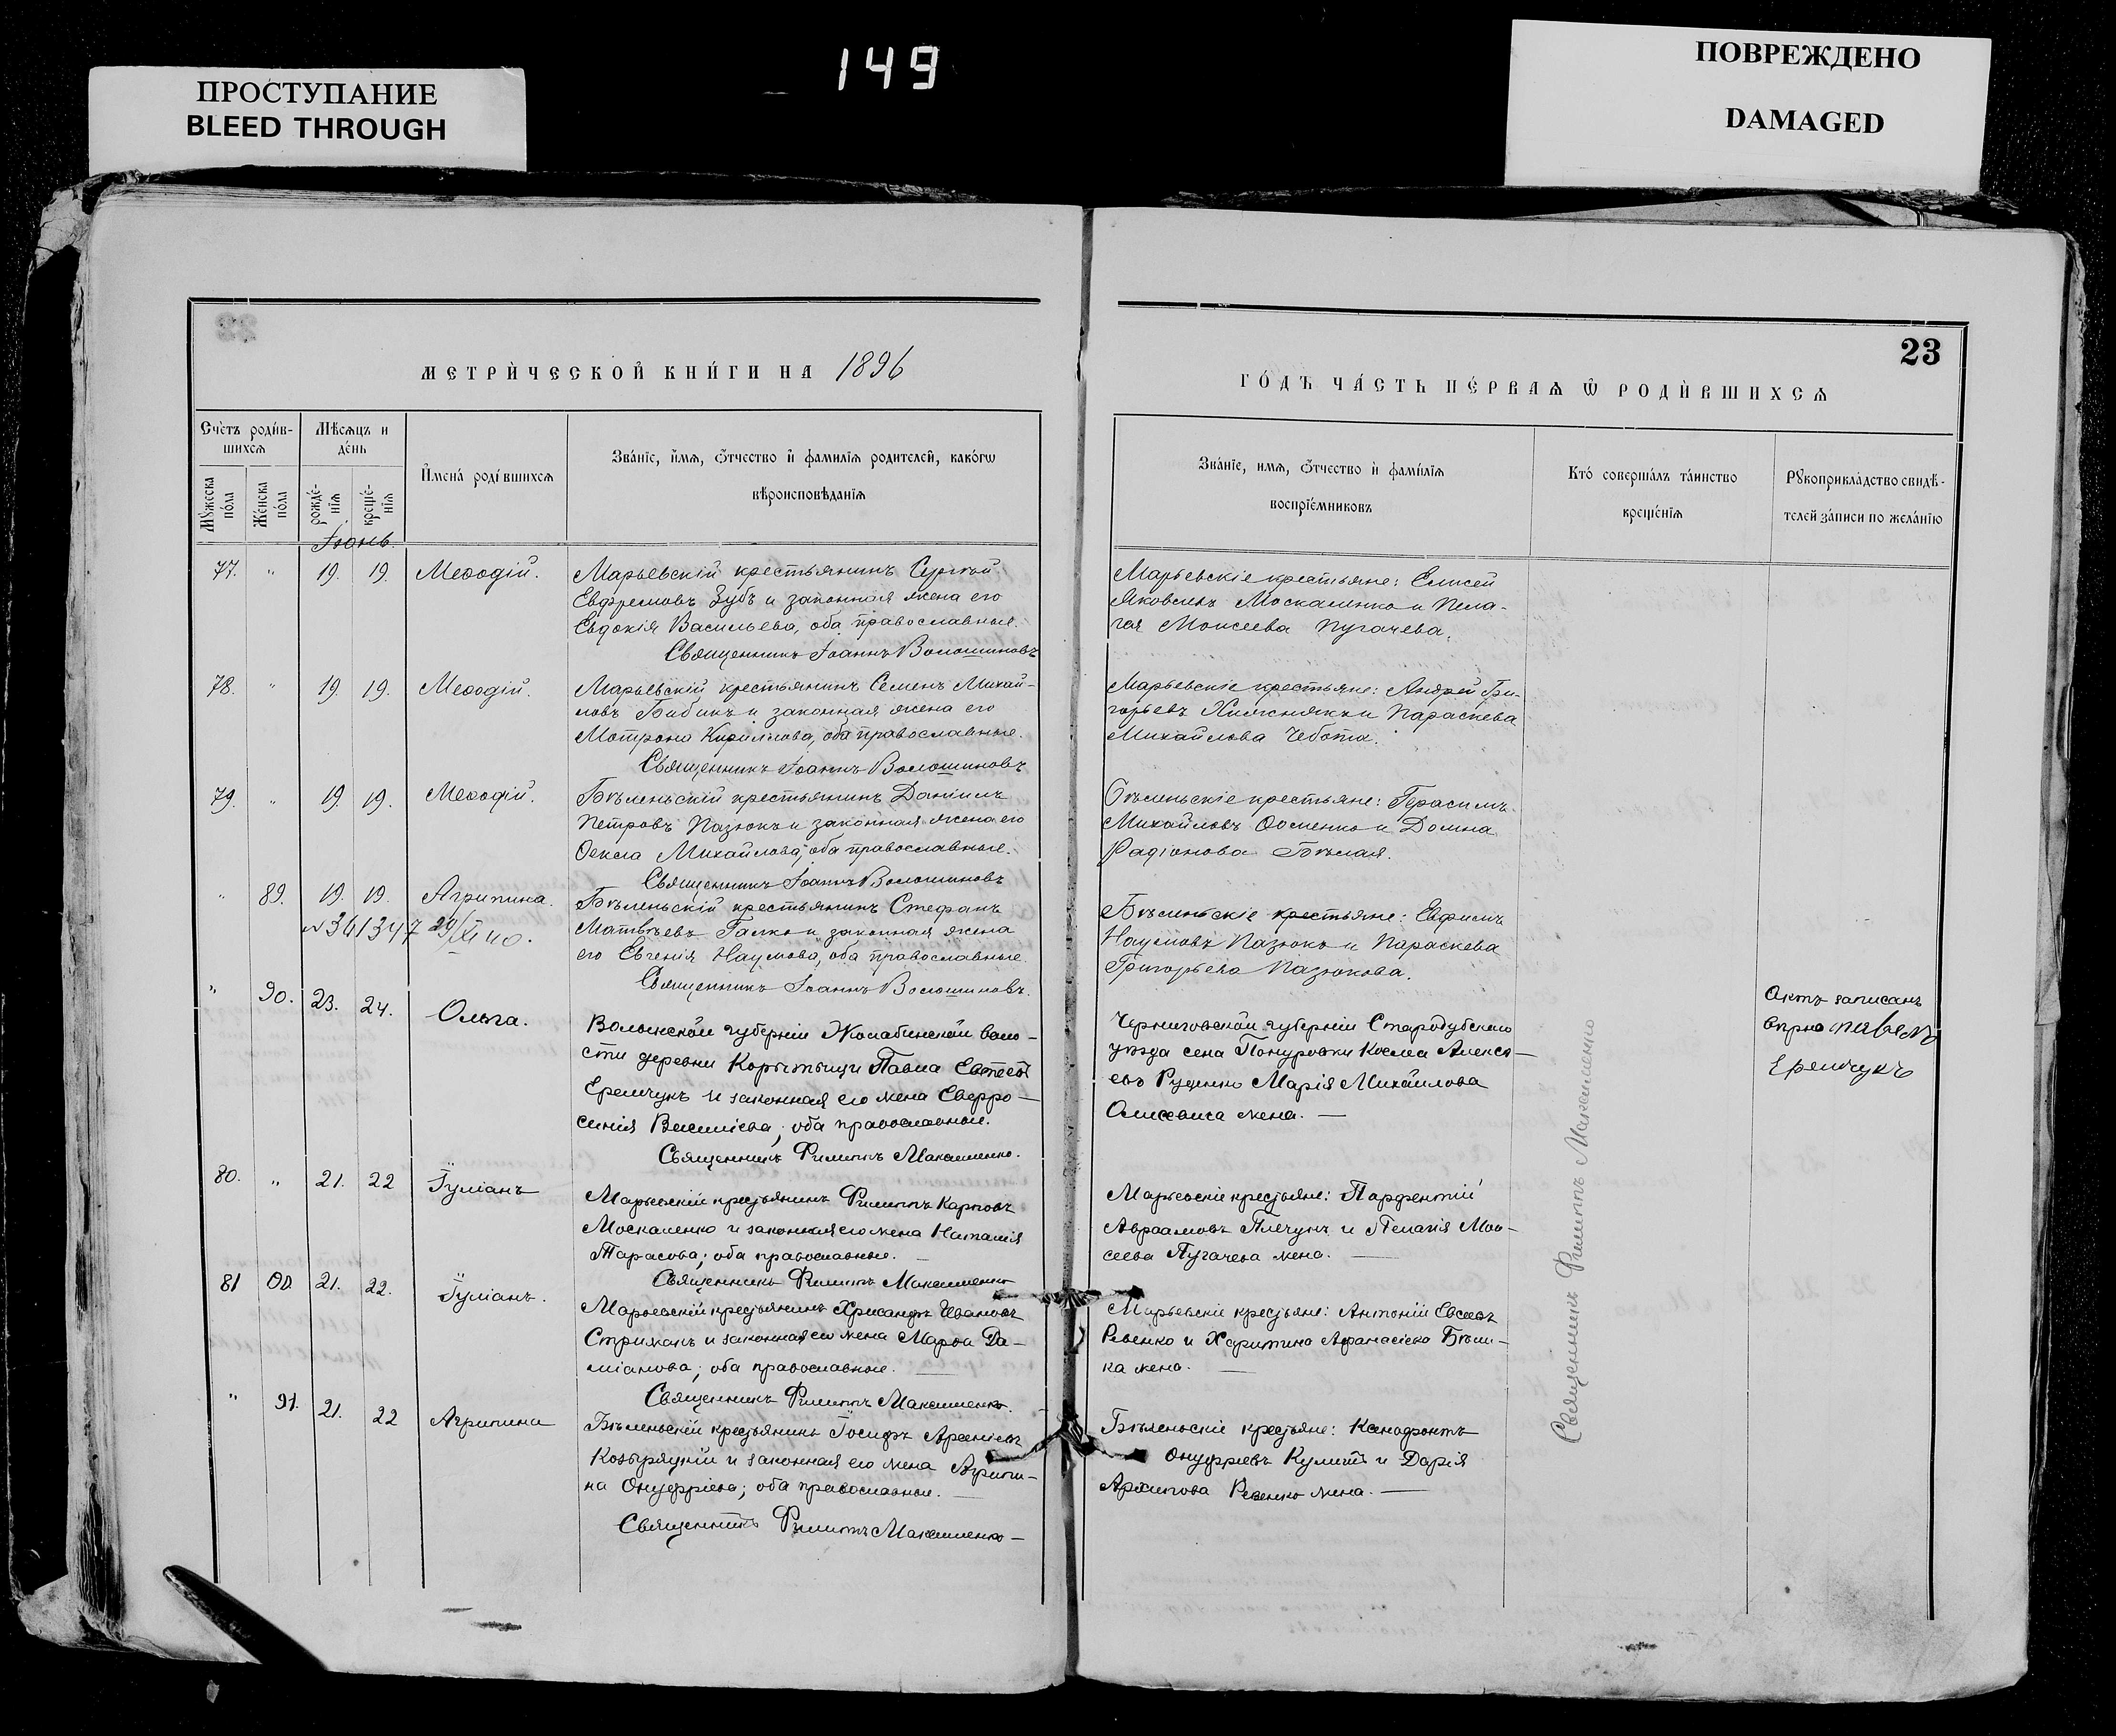 ПРОСТУПАНИЕ
BLEED THROUGH
149
ПОВРЕЖДЕНО
DAMAGED
МЕТРИ́ЧЕСКОЙ КНИ́ГИ НА 1896
ГО́ДЪ ЧА́СТЬ ПЕ́РВАѦ Ѿ РОДИ́ВШИХСѦ
23
Счетъ роди́в-
шихсѧ
Мѣсѧцъ и
де́нь
Мꙋ́жеска
по́ла
Же́нска
по́ла
рожде́-
нїѧ
креще́-
нїѧ
И҆мена́ роди́вшихсѧ
Зва́нїе, и҆́мѧ, ѻ҆́тчество и҆ фами́лїѧ роди́телей, како́гѡ
вѣроисповѣ́данїѧ
Зва́нїе, имѧ, ѻ҆́тчество и҆ фами́лїѧ
воспрїе́мниковъ
Кто́ соверша́лъ та́инство
креще́нїѧ
Рꙋкоприкла́дство свидѣ́-
телей за́писи по жела́нїю
Іюнь.
77. " 19. 19. Меѳодій.
Марьевскій крестьянинъ Сергѣй
Евфремовъ Зубъ и законная жена его
Евдокія Васильева, оба православные.
Священникъ Іоаннъ Волошиновъ
Марьевскіе крестьяне: Елисей
Яковлевъ Москаленко и Пела-
гея Моисеева Пугачева.
78. " 19. 19. Меѳодій.
Марьевскій крестьянинъ Семенъ Михай-
ловъ Бибикъ и законная жена его
Мотрона Кирилова, оба православные.
Священникъ Іоаннъ Волошиновъ
Марьевскіе крестьяне: Андрей Гри-
горьевъ Хижнякъ и Параскева
Михайлова Чебота.
79. " 19. 19. Меѳодій.
Бѣленьскій крестьянинъ Даніилъ
Петровъ Пазюкъ и законная жена его
Ѳекла Михайлова, оба православные.
Священникъ Іоаннъ Волошиновъ
Бѣленьскіе крестьяне: Герасимъ
Михайловъ и Домна
Радіонова Бѣлая.
" 89. 19. 19. Агрипина.
№ 341347 29/XI 40.
Бѣленьскій крестьянинъ Стефанъ
Матвѣевъ Галка и законная жена
его Евгенія Наумова, оба православные.
Священникъ Іоаннъ Волошиновъ.
Бѣленьскіе крестьяне: Евфимъ
Наумовъ Пазюкъ и Параскева
Григорьева Пазюкова.
" 90. 23. 24. Ольга.
Волынской губерніи воло-
сти деревни Корытыщи Павла
Еремчукъ и законная его жена Евфро-
синія Василіева; оба православные.
Священникъ Филиппъ Макаименко.
Черниговской губерніи Стародубскаго
уѣзда села Понуровки Косма Алексѣ-
евъ Руденко Марія Михайлова
жена. —
Актъ записанъ
вѣрно Павелъ
Еремчукъ
80. " 21. 22 Іуліанъ
Марьевскій крестьянинъ Филиппъ Карповъ
Москаленко и законная его жена Наталія
Тарасова; оба православные. —
Священникъ Филиппъ Макаименко
Марьевскіе крестьяне: Парфентій
Авраамовъ Плечунъ и Пелагія Мои-
сеева Пугачева жена. —
81 21. 22. Іуліанъ.
Марьевскій крестьянинъ Хрисанфъ Ивановъ
Стрижакъ и законная его жена Марѳа Да-
міанова; оба православные. —
Священникъ Филиппъ Макаименко.
Марьевскіе крестьяне: Антоній Евсеевъ
Ревенко и Харитина Афанасіева Бѣли-
ка жена. —
" 91. 21. 22 Агрипина
Бѣленьскій крестьянинъ Іосифъ Арсеніевъ
Козыряцкій и законная его жена Агрипи-
на Онуфріева; оба православные. —
Священникъ Филиппъ Макаименко —
Бѣленьскіе крестьяне: Ксенофонтъ
Онуфріевъ Кулишъ и Дарія
Архипова Ревенко жена. —
Священникъ Филиппъ Макаименко